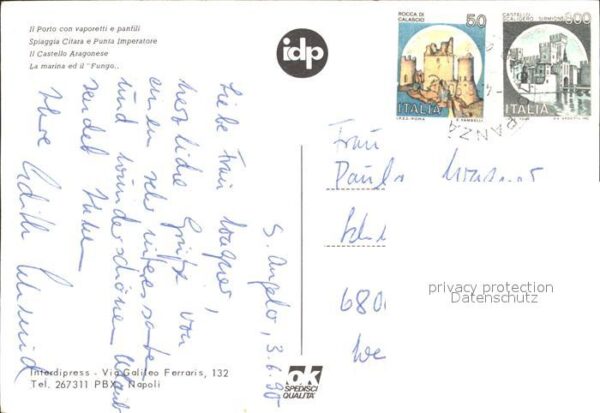 Il Porto con vaporetti e panfili
Spiaggia Citara e Punta Imperatore
Il Castello Aragonese
La marina ed il "Fungo..
idp
ROCCA DI
CALASCIO
50
ITALIA
I.P.Z.S.-ROMA
CASTELLO
SCALIGERO - SIRMIONE
600
ITALIA
S. Angelo, 3.6.90
Liebe Frau Wagner,
herzliche Grüße von
einem sehr interessanten
und wunderschönen
sendet Ihnen
Ihre Edith
Frau
Paula
680
We
privacy protection
Datenschutz
Interdipress - Via Galileo Ferraris, 132
Tel. 267311 PBX Napoli
ok
SPEDISCI
QUALITÀ